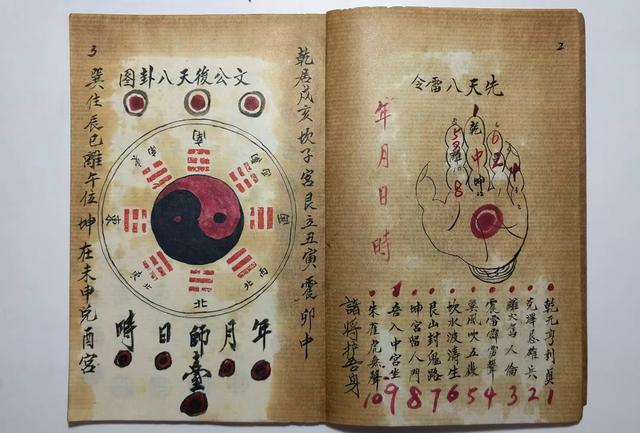 2
先天八雷令
年月日時
乾
中
坤
離
8
乾元亨利貞 1
兌澤惡雄兵 2
離火駕人倫 3
震雷霹雷聲 4
巽風吹五嶽 5
坎水波濤生 6
艮山封鬼路 7
坤宮留人門 8
吾入中宮坐 9
朱雀虎無聲 10
諸將护吾身
3
乾居戌亥坎子宮艮立丑寅震卯中
文公後天八卦图
南
西
西北
北
東
年月師臺日時
巽住辰巳離午位坤在未申兌酉宮